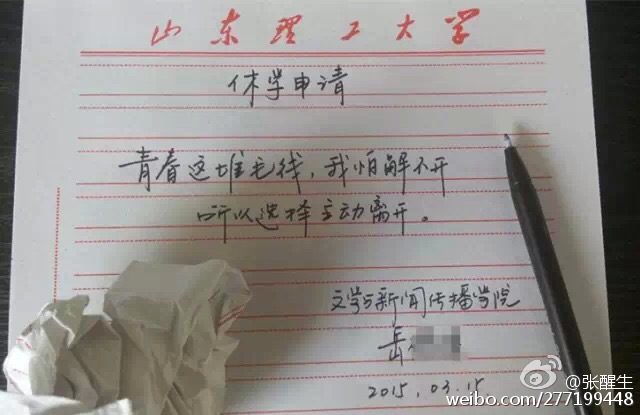 山东理工大学
休学申请
青春这堆毛线，我怕解不开
所以选择主动离开。
文学与新闻传播学院
岳
2015.03.15
@张醒生
weibo.com/277199448